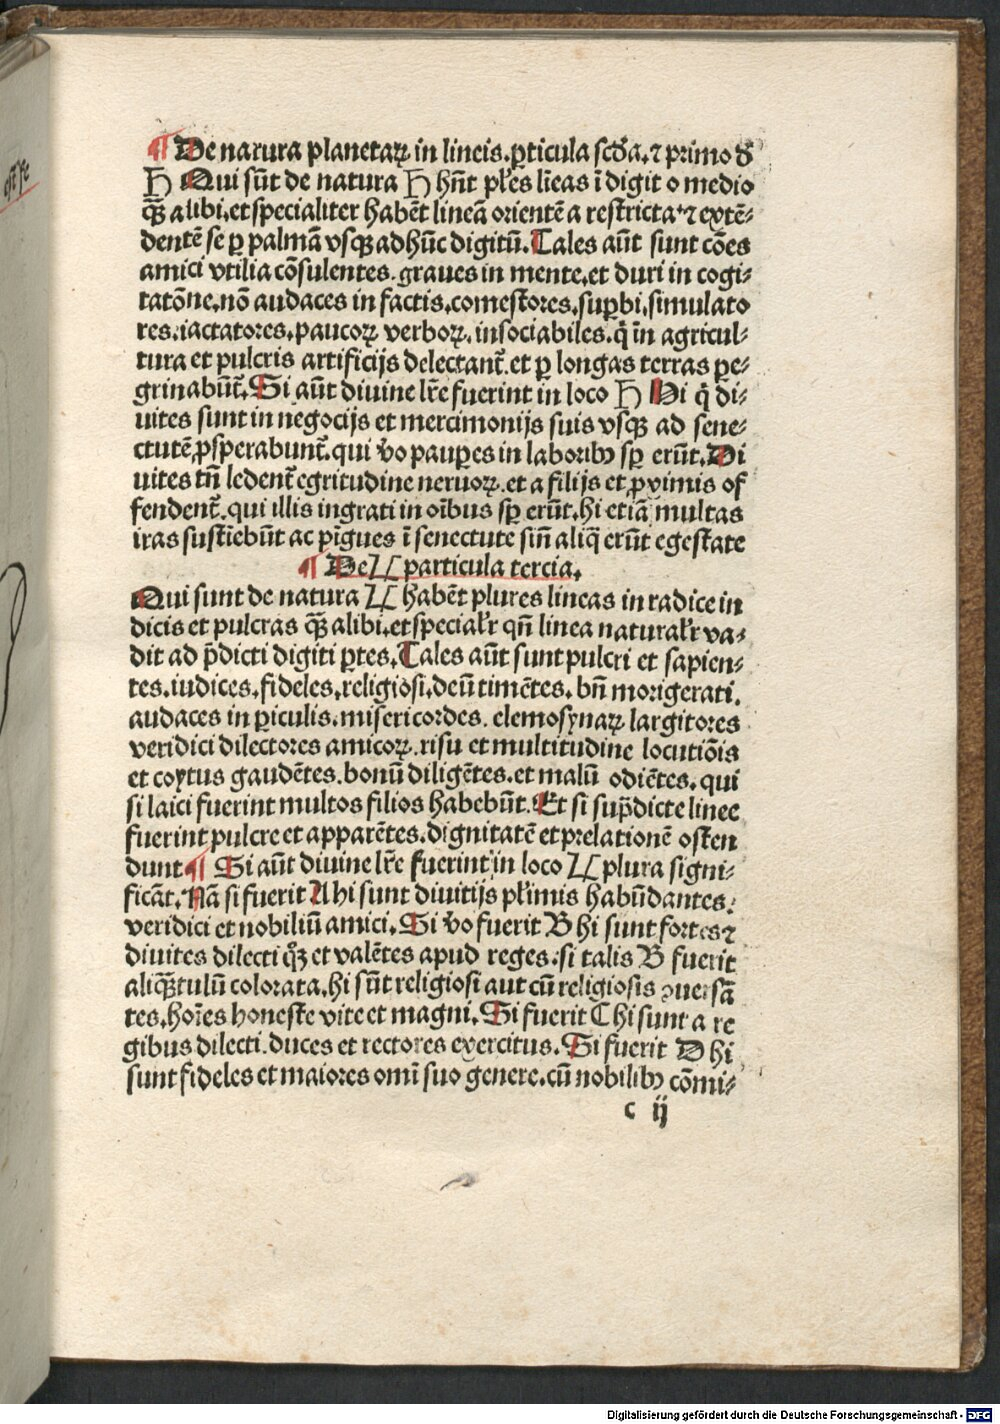 ¶ De natura planetaꝝ in lineis. ꝑticula scd̃a. ⁊ primo d̃
♄ Qui sũt de natura ♄ hñt pl̃es lĩeas ĩ digit o medio
qͣꝫ alibi. et specialiter habẽt lineã orientẽ a restricta ⁊ extẽ⸗
dentẽ se ꝑ palmã vsqꝫ ad hũc digitũ. Tales aũt sunt cões
amici vtilia cõsulentes. graues in mente. et duri in cogi⸗
tatõne. nõ audaces in factis. comestores. suꝑbi. simulato
res. iactatores. paucoꝝ verboꝝ. insociabiles. q̃ in agricul⸗
tura et pulcris artificijs delectant᷑. et ꝑ longas terras pe⸗
grinabũt᷑. Si aũt diuine lr̃e fuerint in loco ♄ Hi q̃ di⸗
uites sunt in negocijs et mercimonijs suis vsqꝫ ad sene⸗
ctutẽ ꝓsperabunt᷑. qui v̊o pauꝑes in laboribꝫ sꝑ erũt. Di
uites tñ ledent᷑ egritudine neruoꝝ. et a filijs et ꝓximis of
fendent᷑. qui illis ingrati in oĩbus sꝑ erũt. hi etiã multas
iras sustiebũt ac pĩgues ĩ senectute siñ aliq̃ erũt egestate
¶ De ♃ particula tercia.
Qui sunt de natura ♃ habẽt plures lineas in radice in
dicis et pulcras qͣꝫ alibi. et special̃r qñ linea natural̃r va⸗
dit ad p̃dicti digiti ꝑtes. Tales aũt sunt pulcri et sapien⸗
tes. iudices. fideles. religiosi. deũ timẽtes. bñ morigerati.
audaces in ꝑiculis. misericordes. elemosynaꝝ largitores
veridici dilectores amicoꝝ. risu et multitudine locutiõis
et coytus gaudẽtes. bonũ diligẽtes. et malũ odiẽtes. qui
si laici fuerint multos filios habebũt. Et si sup̃dicte linee
fuerint pulcre et apparẽtes. dignitatẽ et prelationẽ osten
dunt ¶ Si aũt diuine lr̃e fuerint in loco ♃ plura signi⸗
ficãt. Nã si fuerit A hi sunt diuitijs pl̃imis habũdantes.
veridici et nobiliũ amici. Si v̊o fuerit B hi sunt fortes ⁊
diuites dilecti qͦꝫ et valẽtes apud reges. si talis B fuerit
aliqͣꝫtulũ colorata. hi sũt religiosi aut cũ religiosis ꝯuersã
tes. hoĩes honeste vite et magni. Si fuerit C hi sunt a re
gibus dilecti. duces et rectores exercitus. Si fuerit D hi
sunt fideles et maiores omĩ suo genere. cũ nobilibꝫ cõmi⸗
c ij
Digitalisierung gefördert durch die Deutsche Forschungsgemeinschaft - DFG